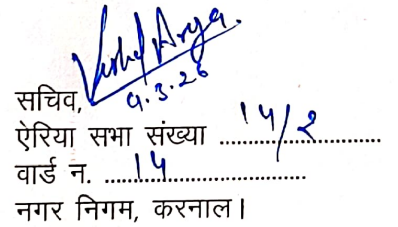 Vishal Arya.
9.3.26
सचिव,
ऐरिया सभा संख्या ....14/2....
वार्ड न. ....14....
नगर निगम, करनाल।